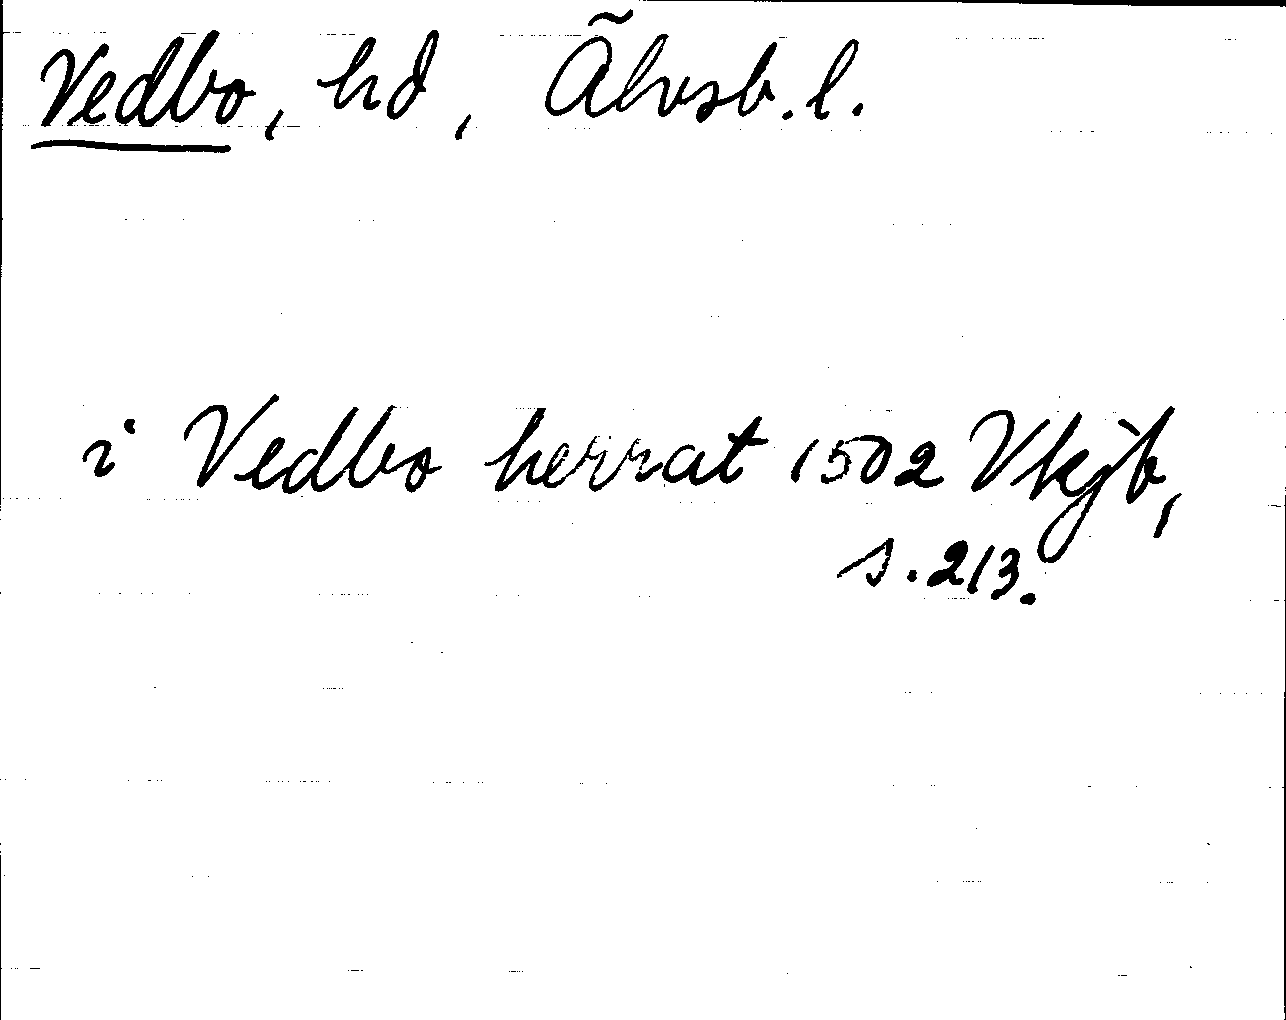 Vedbo, hd, Älvsb. l.
i Vedbo herrat 1502 Vkjb,
s. 213.